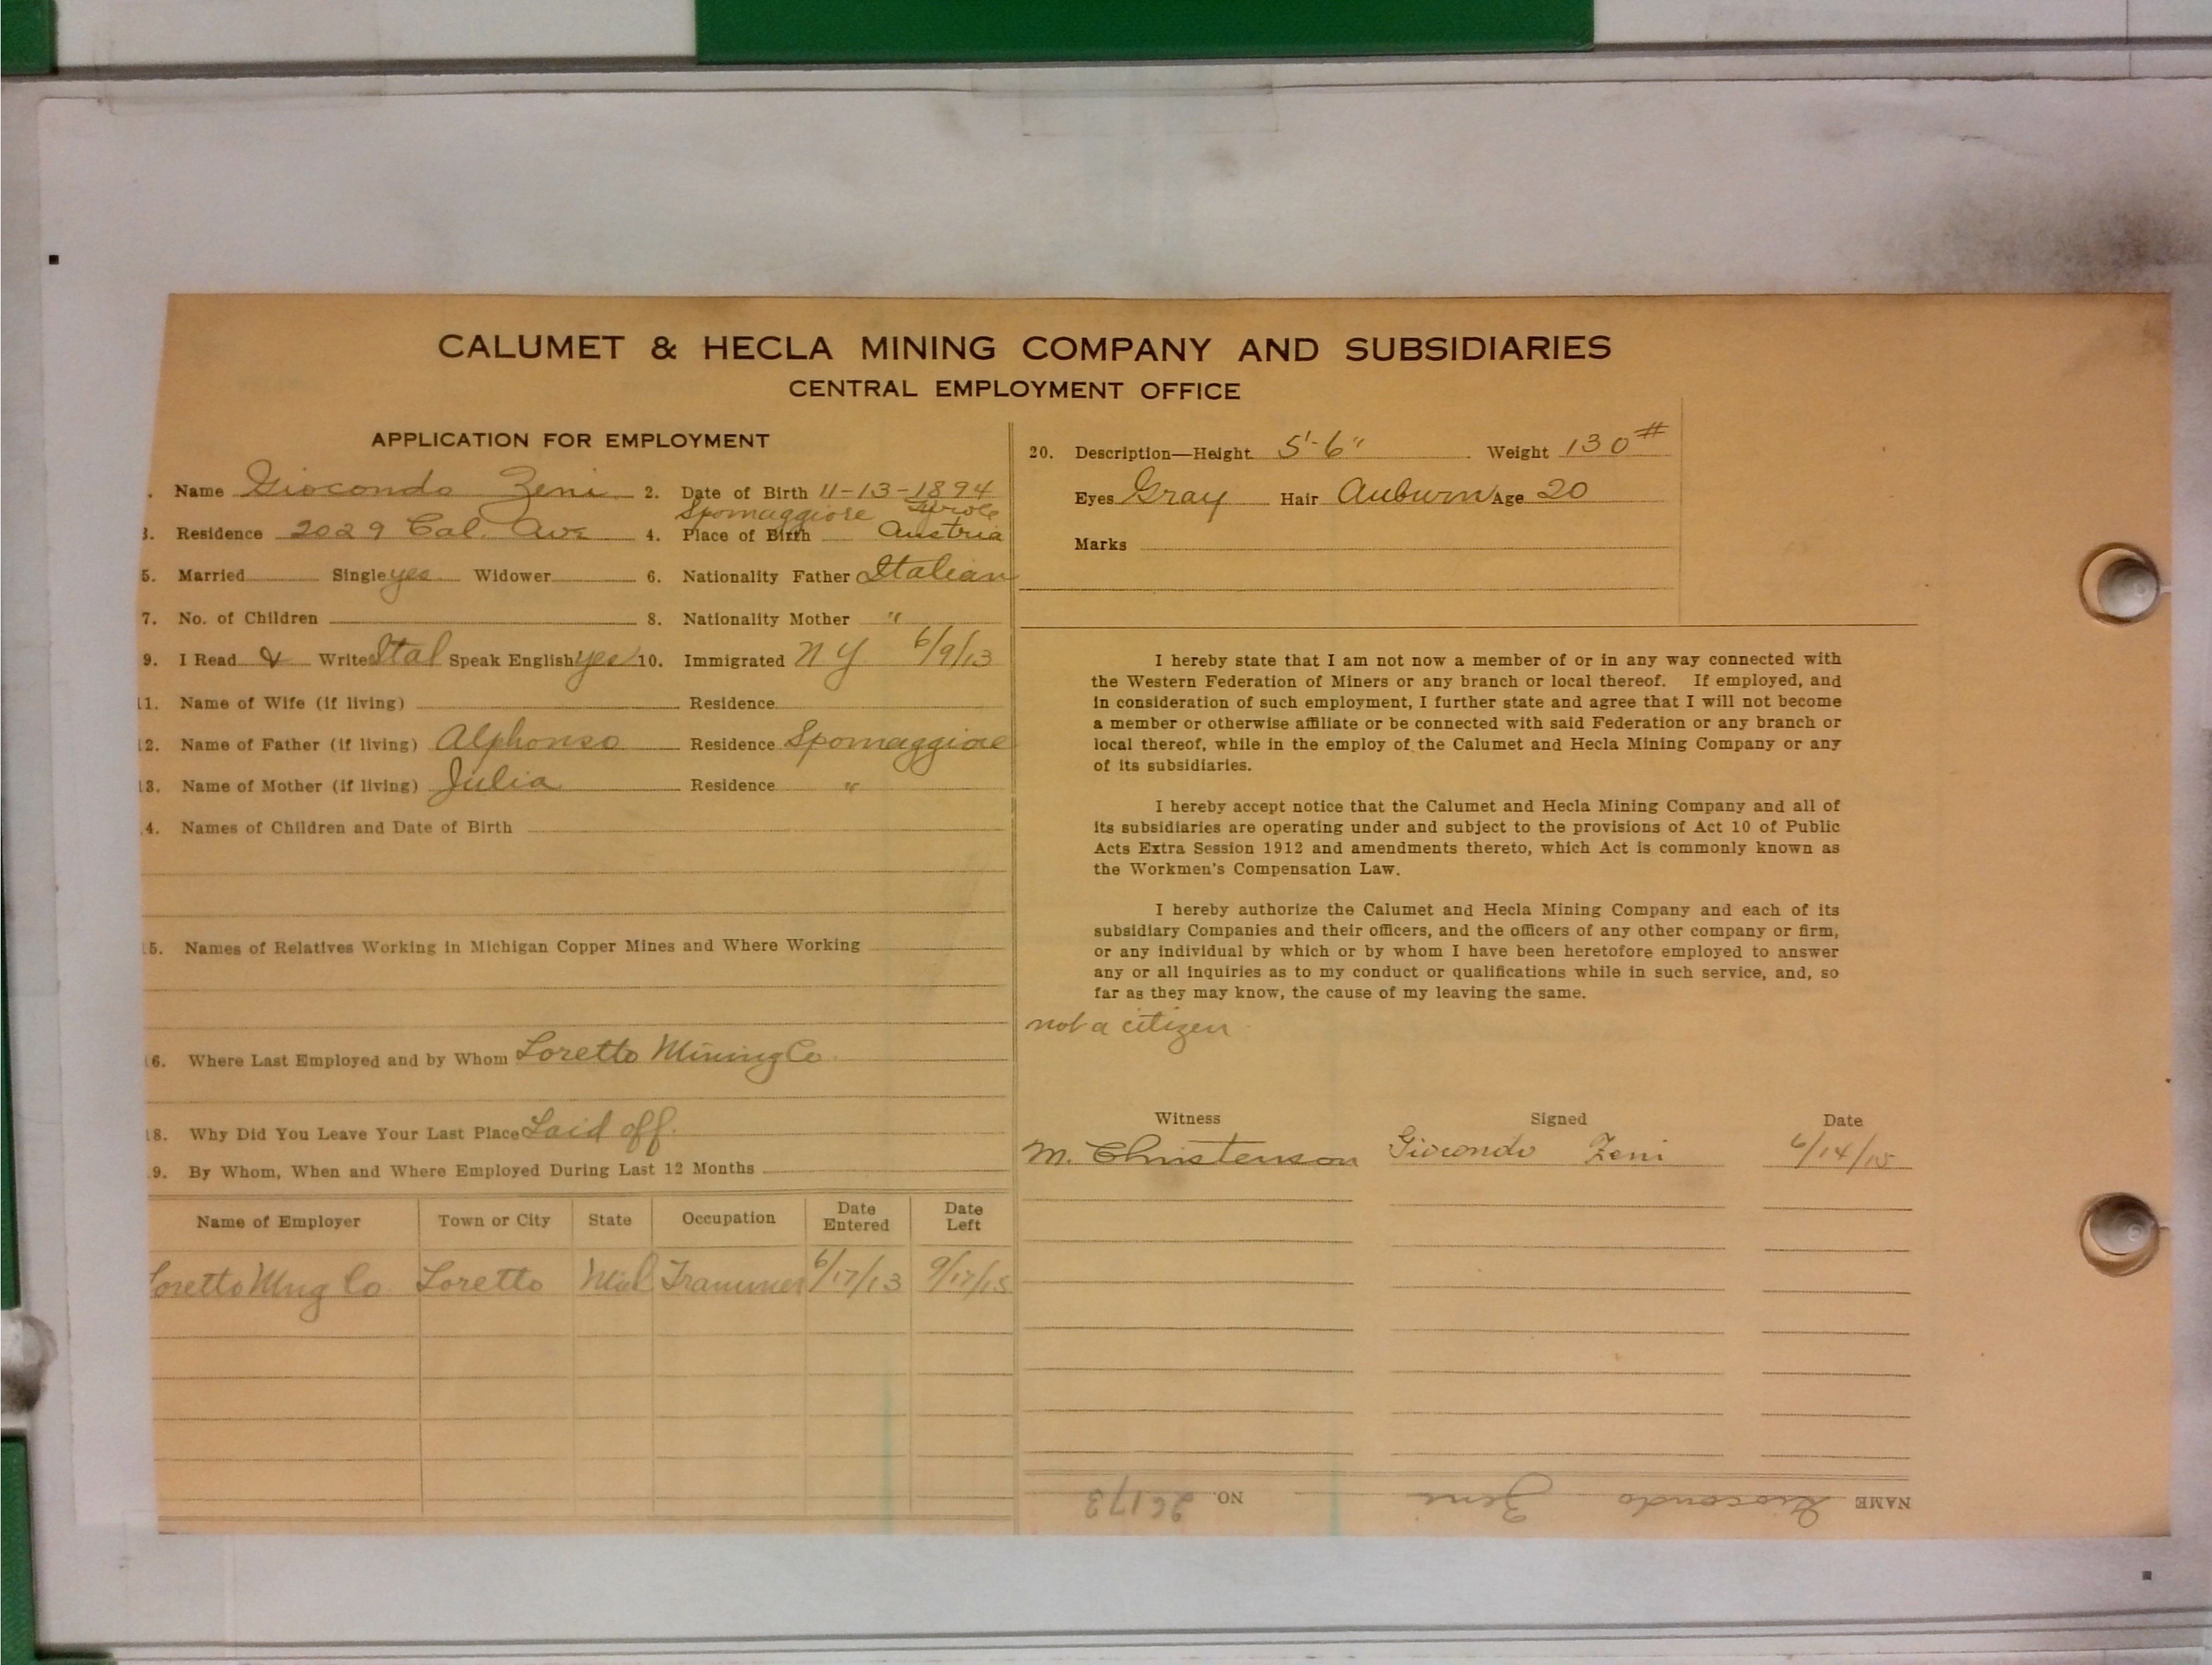 CALUMET & HECLA MINING COMPANY AND SUBSIDIARIES
CENTRAL EMPLOYMENT OFFICE
APPLICATION FOR EMPLOYMENT
. Name Giocondo Zeni 2. Date of Birth 11-13-1894
Spomaggiore
3. Residence 2029 Cal. Ave 4. Place of Birth Austria
5. Married Single yes Widower 6. Nationality Father Italian
7. No. of Children 8. Nationality Mother "
9. I Read & Write Ital Speak English yes 10. Immigrated N Y 6/9/13
11. Name of Wife (if living) Residence
12. Name of Father (if living) Alphonso Residence Spomaggiore
13. Name of Mother (if living) Julia Residence "
4. Names of Children and Date of Birth
15. Names of Relatives Working in Michigan Copper Mines and Where Working
16. Where Last Employed and by Whom Loretto Mining Co
18. Why Did You Leave Your Last Place Laid off.
9. By Whom, When and Where Employed During Last 12 Months
Name of Employer Town or City State Occupation Date Entered Date Left
Loretto Mng Co Loretto Trammer 6/17/13 9/17/15
20. Description—Height 5'-6" Weight 130#
Eyes Gray Hair Auburn Age 20
Marks
I hereby state that I am not now a member of or in any way connected with
the Western Federation of Miners or any branch or local thereof. If employed, and
in consideration of such employment, I further state and agree that I will not become
a member or otherwise affiliate or be connected with said Federation or any branch or
local thereof, while in the employ of the Calumet and Hecla Mining Company or any
of its subsidiaries.
I hereby accept notice that the Calumet and Hecla Mining Company and all of
its subsidiaries are operating under and subject to the provisions of Act 10 of Public
Acts Extra Session 1912 and amendments thereto, which Act is commonly known as
the Workmen's Compensation Law.
I hereby authorize the Calumet and Hecla Mining Company and each of its
subsidiary Companies and their officers, and the officers of any other company or firm,
or any individual by which or by whom I have been heretofore employed to answer
any or all inquiries as to my conduct or qualifications while in such service, and, so
far as they may know, the cause of my leaving the same.
not a citizen
Witness Signed Date
M. Christenson Giocondo Zeni 6/14/15
NAME Giocondo Zeni NO. 26173